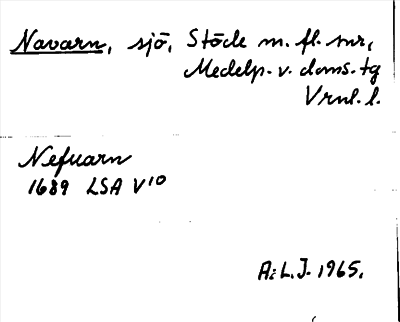 Navarn, sjö, Stöde m. fl. snr,
Medelp. v. doms. tg
Vrnl. l.
Nefuarn
1689 LSA V10
A: L. J. 1965.